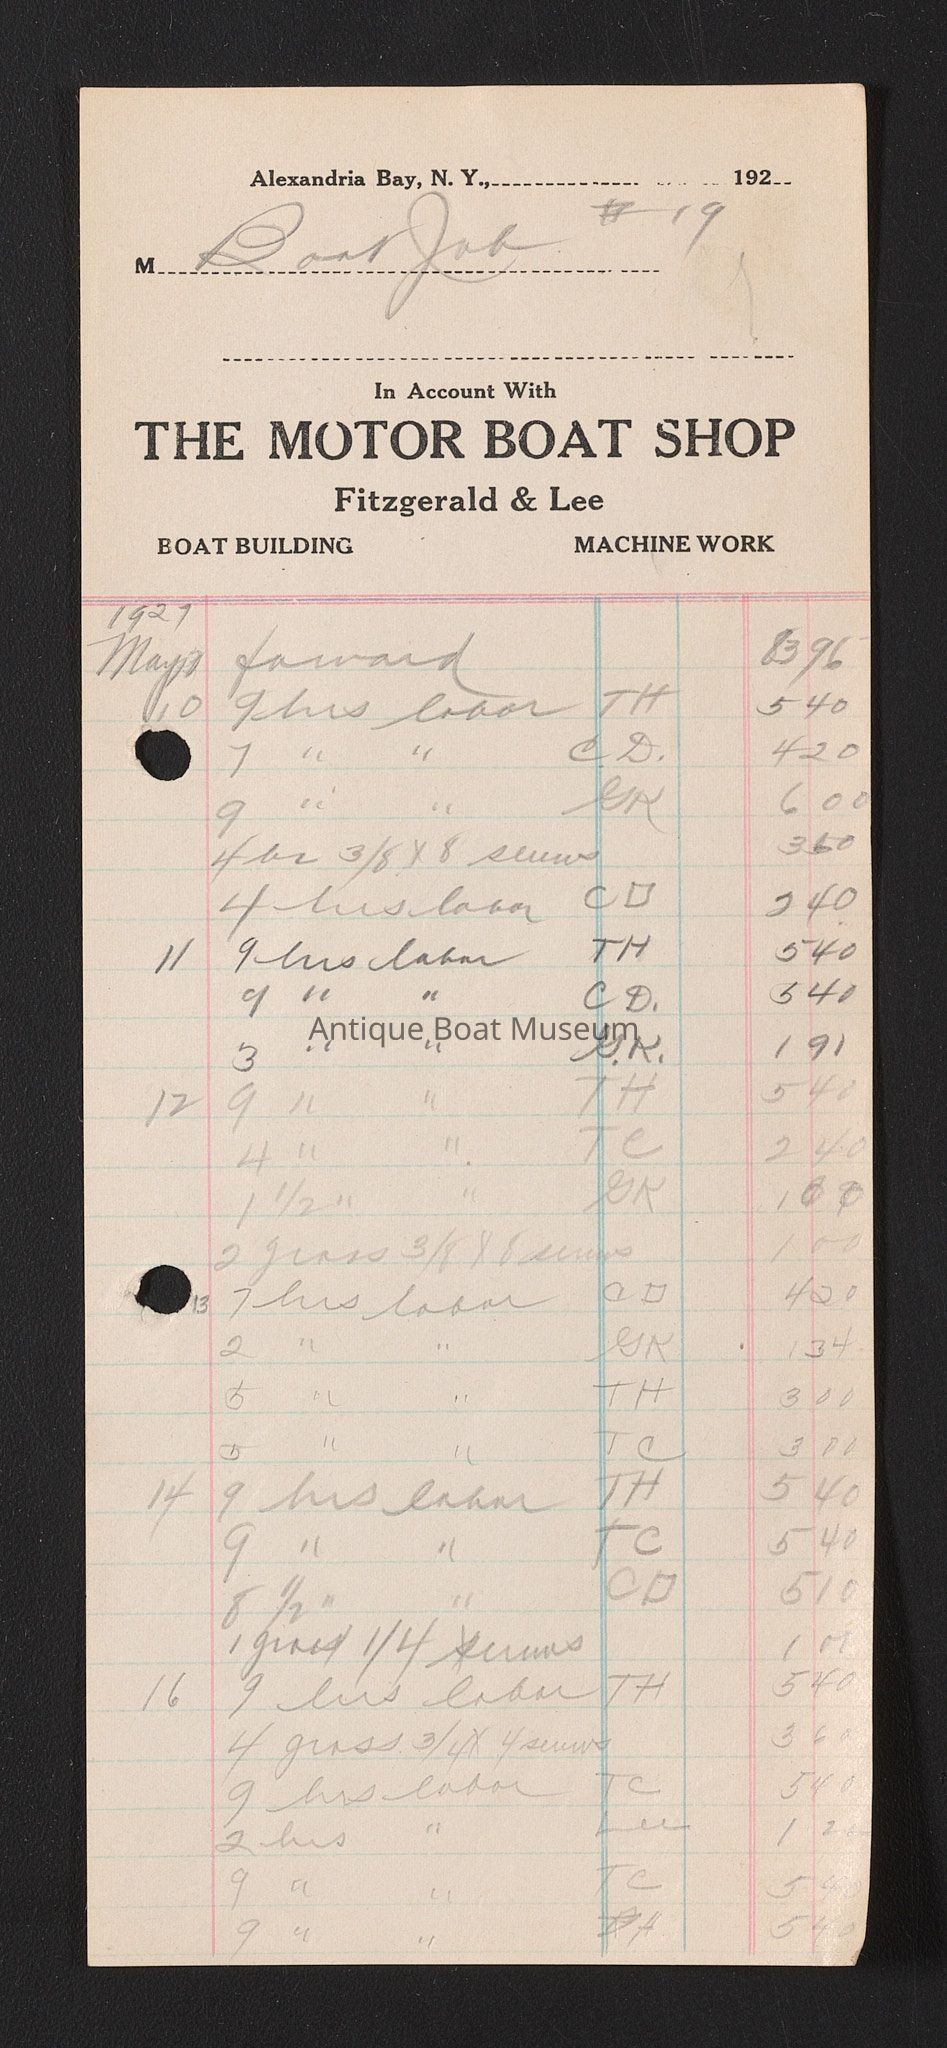 Alexandria Bay, N. Y., 192
M Boat Job # 19
In Account With
THE MOTOR BOAT SHOP
Fitzgerald & Lee
BOAT BUILDING MACHINE WORK
1921
May forward 396
10 9 hrs labor TH 540
7 " " C.D. 420
9 " " GK 600
4 3/8 X 8 screws 360
4 hrs labor CD 240
11 9 hrs labor TH 540
9 " " C D. 540
Antique Boat Museum
3 " " G.K. 191
12 9 " " TH 540
4 " " TC 240
1 1/2 " " GK 100
2 gross 3/8 X 8 screws 100
13 7 hrs labor CD 420
2 " " GK 134
5 " " TH 300
5 " " TC 300
14 9 hrs labor TH 540
9 " " TC 540
8 1/2 " " CD 510
1 gross 1/4 screws 100
16 9 hrs labor TH 540
4 gross 3/4 X 4 screws 360
9 hrs labor TC 540
2 hrs " Lee 120
9 " " TC 540
9 " " TH 540